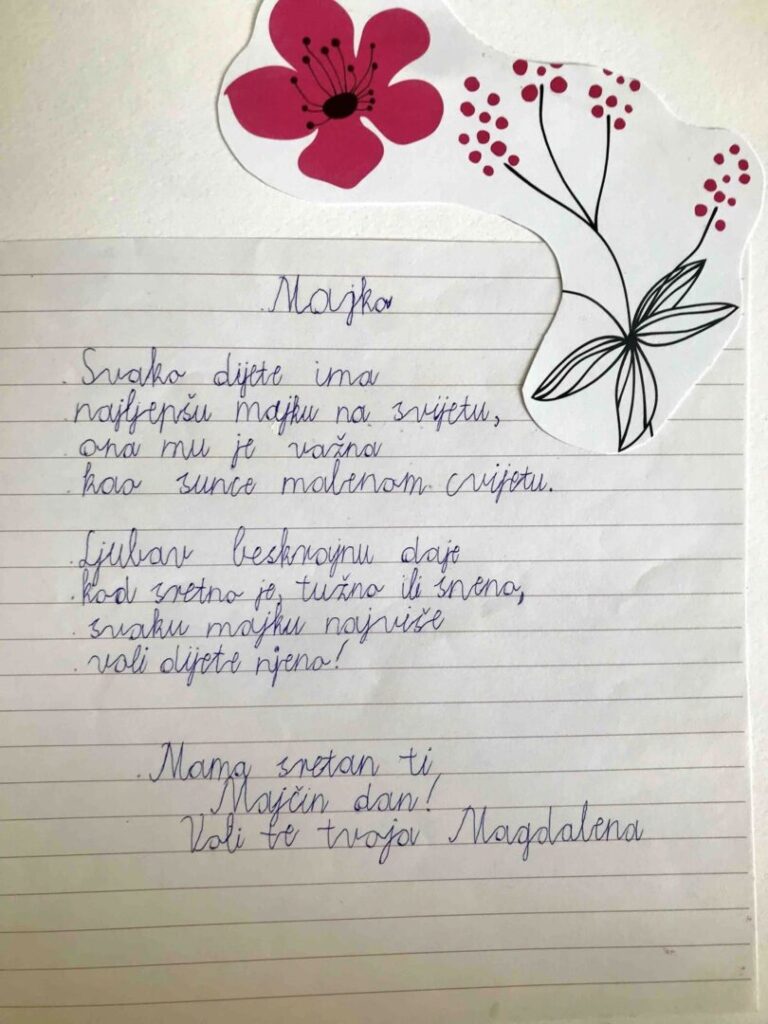 Majka
Svako dijete ima
najljepšu majku na svijetu,
ona mu je važna
kao sunce malenom cvijetu.
Ljubav beskrajnu daje
kad sretno je, tužno ili sneno,
svaku majku najviše
voli dijete njeno!
Mama sretan ti
Majčin dan!
Voli te tvoja Magdalena